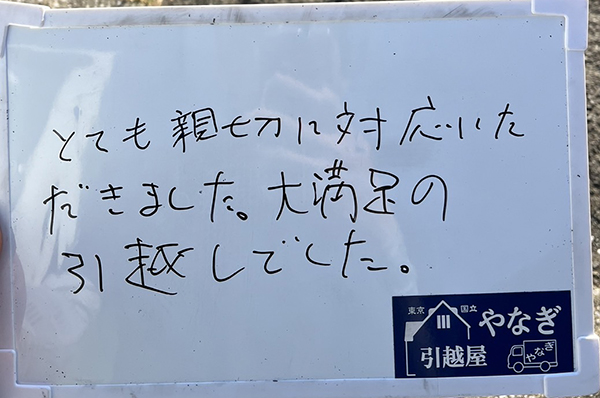 とても親切に対応いた
だきました。大満足の
引越しでした。
東京 国立
やなぎ
引越屋
やなぎ